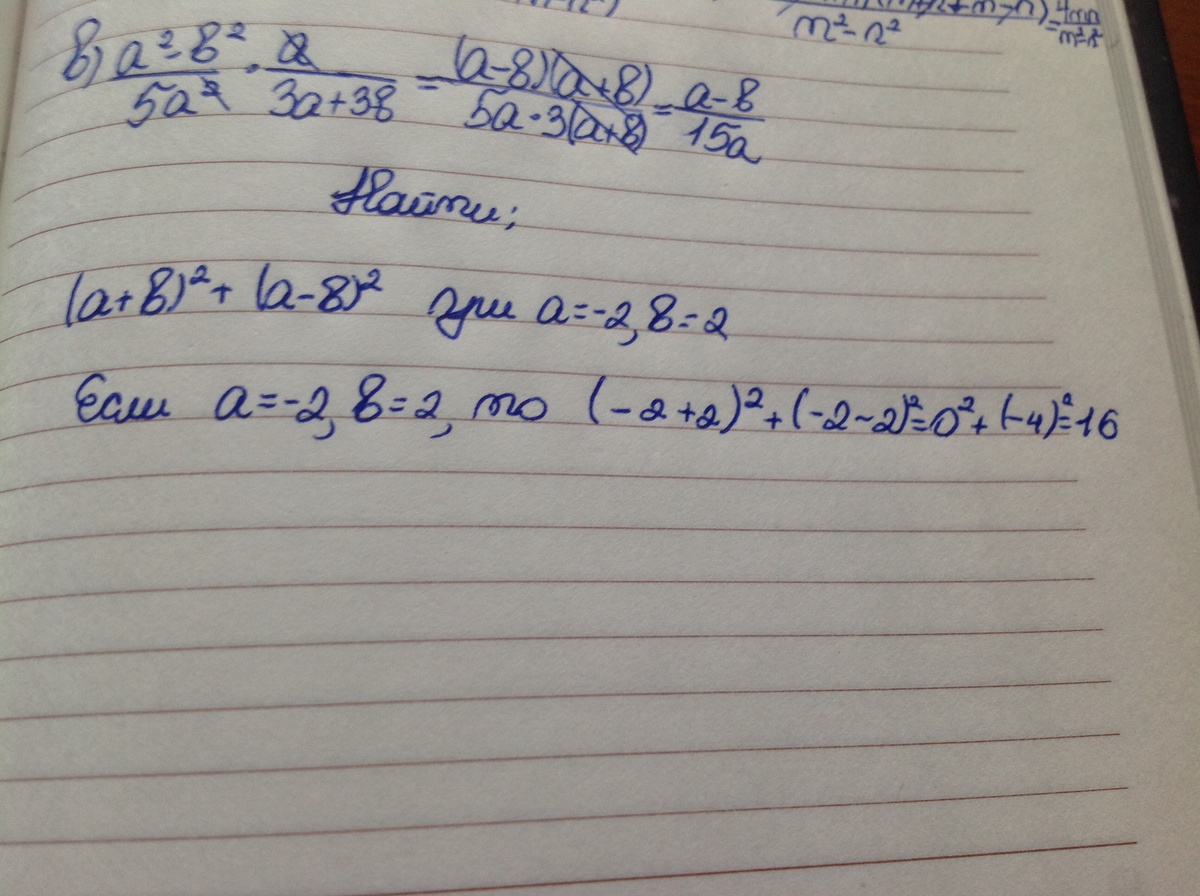 m²-n² = 4mn/m²-n²
в) a²-b²/5a² · a/3a+3b = (a-b)(a+b)/5a·3(a+b) = a-b/15a
Найти:
(a+b)²+(a-b)² при a=-2, b=2
Если a=-2, b=2, то (-2+2)²+(-2-2)²=0²+(-4)²=16